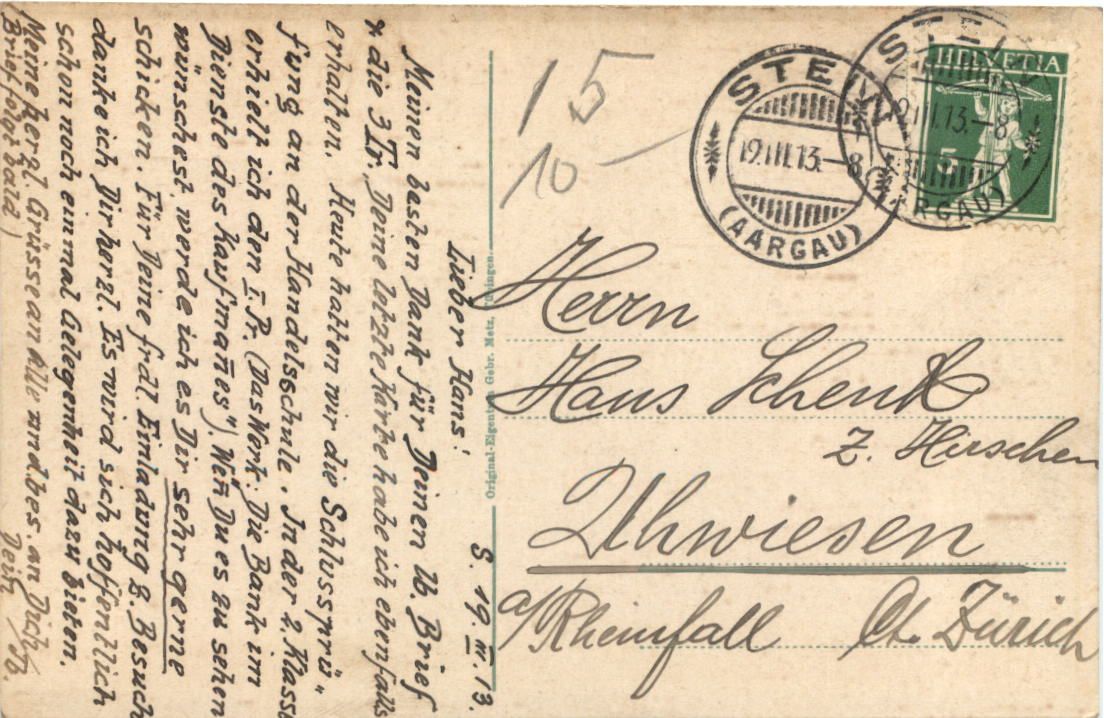 S. 19. III. 13.
Lieber Hans!
Meinen besten Dank für Deinen lb. Brief
& die 3 Fr. Deine letzte Karte habe ich ebenfalls
erhalten. Heute hatten wir die Schlussprü"
fung an der Handelsschule. In der 2. Klasse
erhielt ich den I. Pr. (Das Werk: Die Bank im
Dienste des Kaufmañes") Weñ Du es zu sehen
wünschest, werde ich es Dir sehr gerne
schicken. Für Deine frdl. Einladung z. Besuch
danke ich Dir herzl. Es wird sich hoffentlich
schon noch einmal Gelegenheit dazu bieten.
Meine herzl. Grüsse an Alle und bes. an Dich/
(Brief folgt bald) Dein
Original-Eigentum Gebr. Metz, Tübingen.
15
10 —
STEIN
19.III.13.–8
(AARGAU)
STEIN
19.III.13.–8
(AARGAU)
HELVETIA
5
Herrn
Hans Schenk
z. Hirschen
Uhwiesen
a/Rheinfall Ct. Zürich